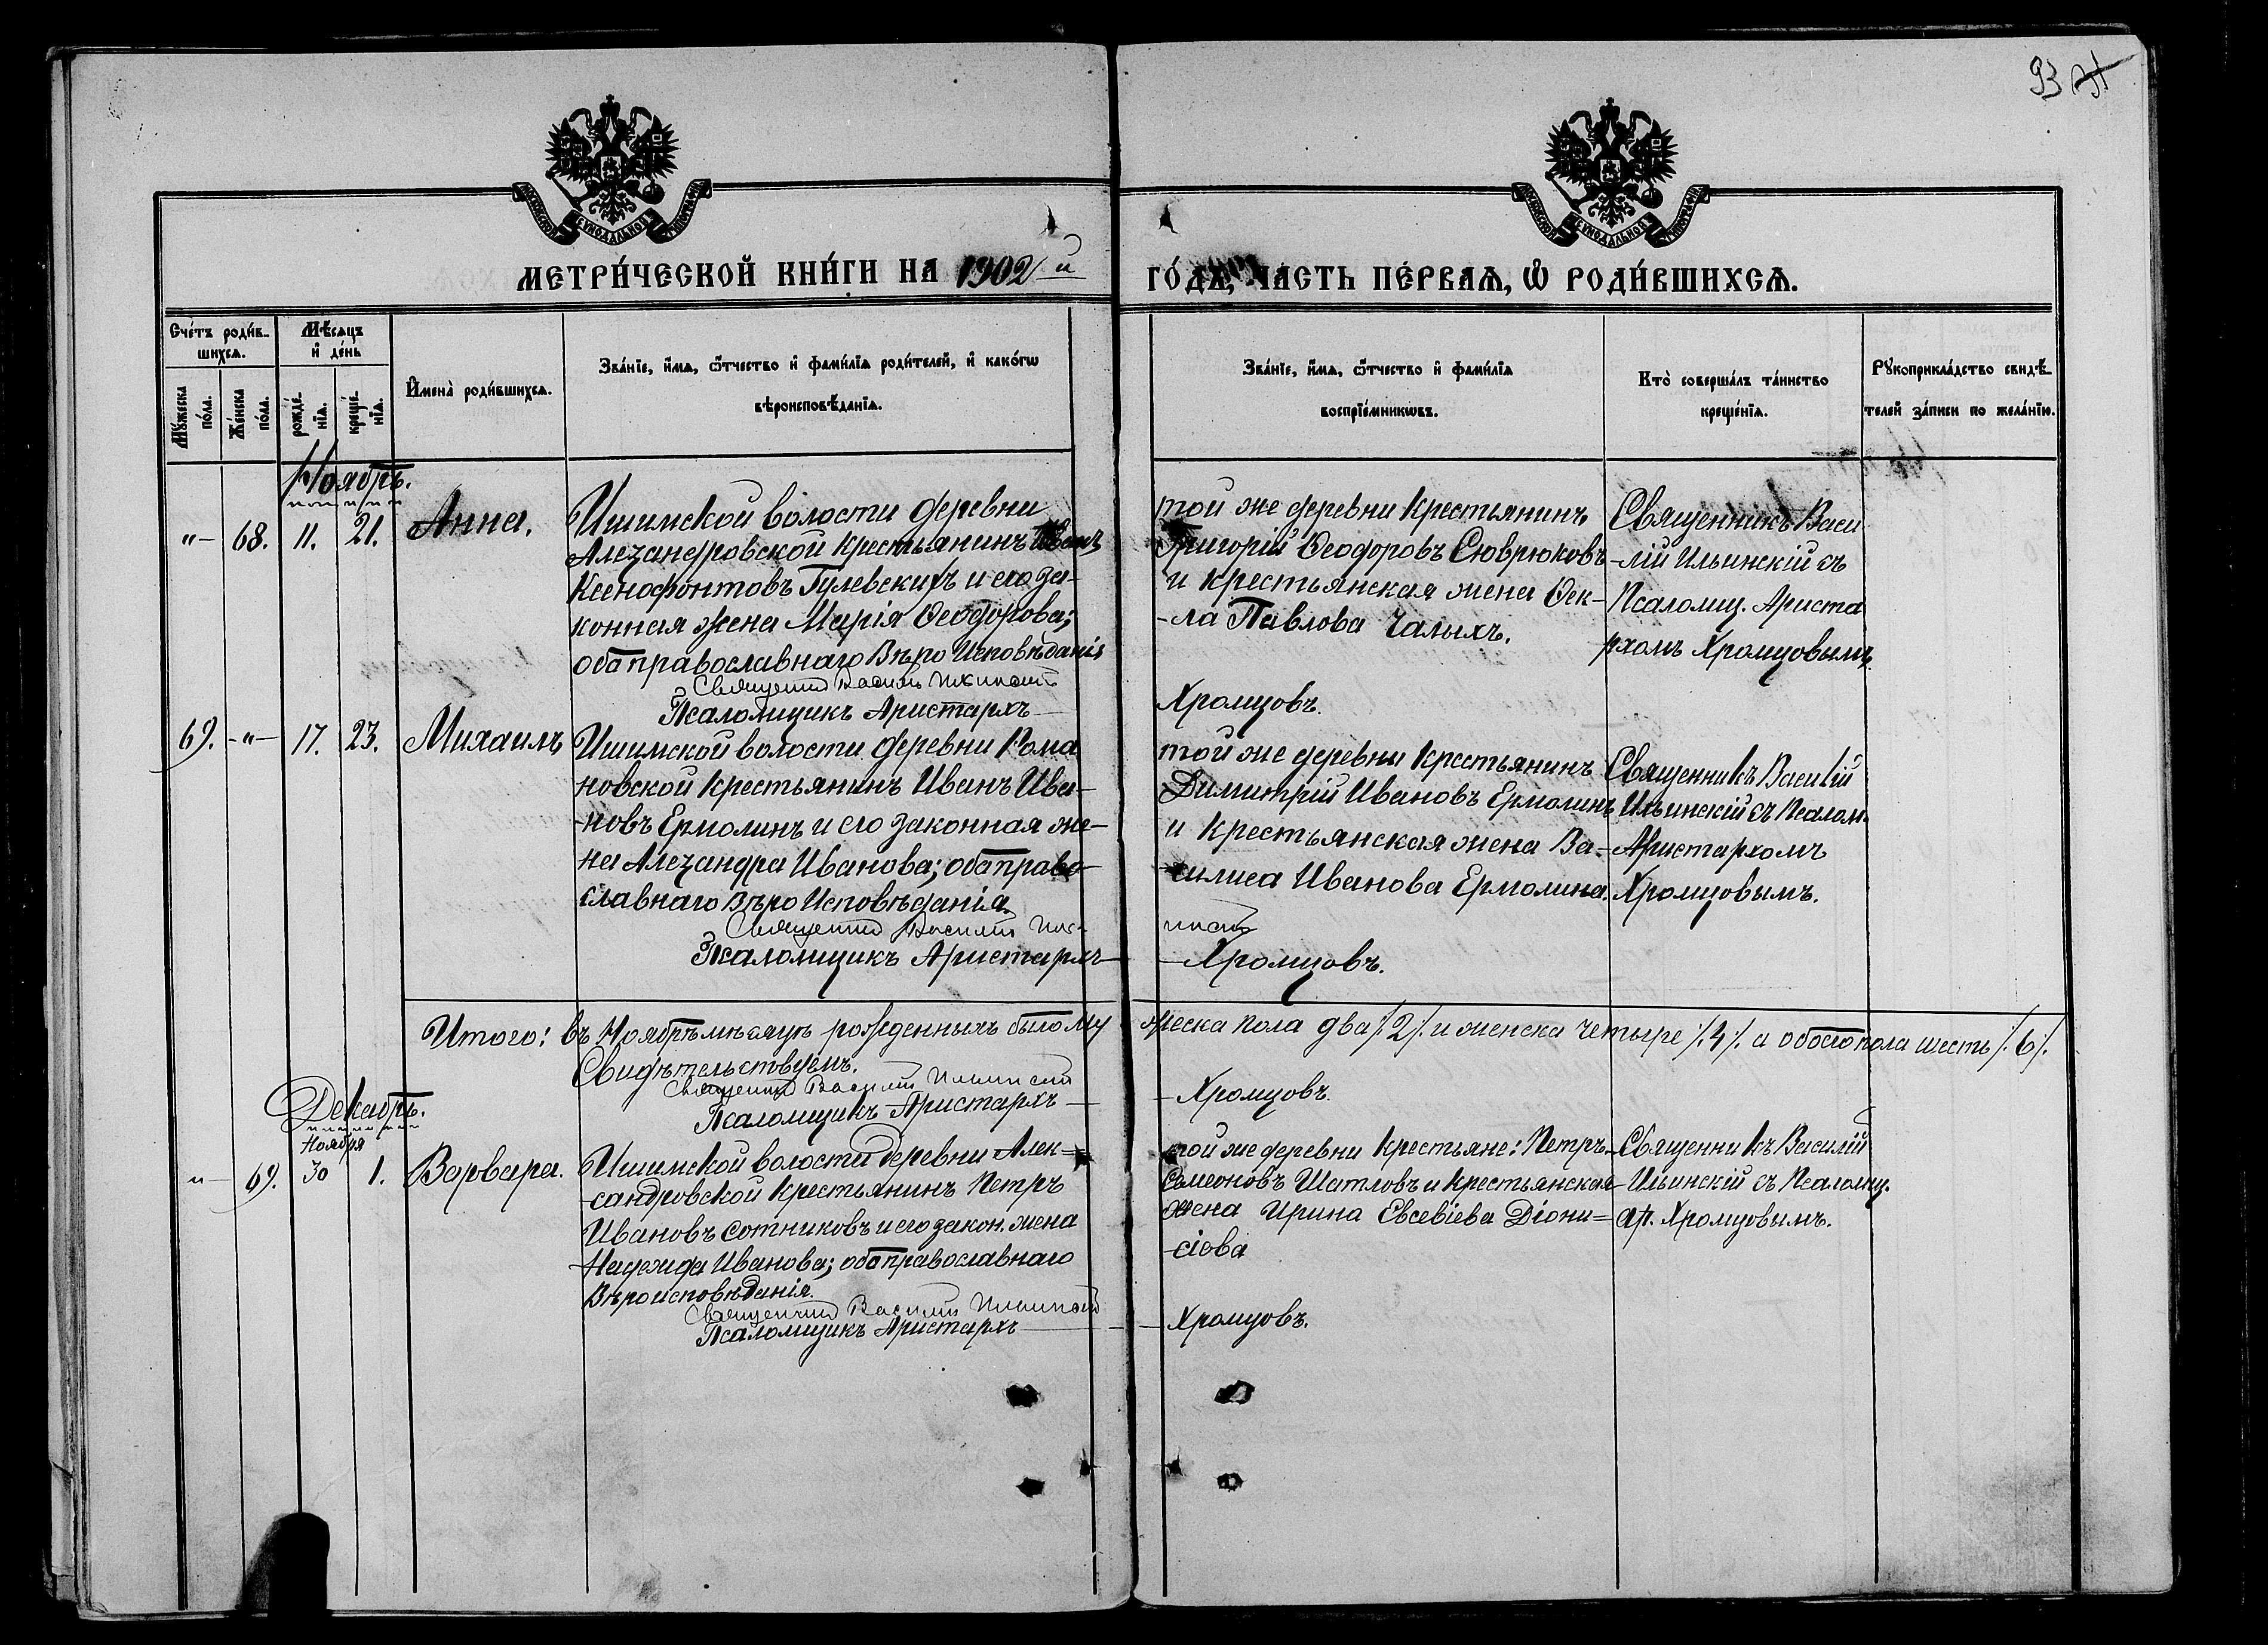 93
МЕТРИ́ЧЕСКОЙ КНИ́ГИ НА 1902й ГО́ДЪ, ЧА́СТЬ ПЕ́РВАѦ, Ѡ РОДИ́ВШИХСѦ.
Сче́тъ роди́в-
шихсѧ.
Мѣ́сѧцъ
и де́нь
Мꙋ́жеска по́ла.
Же́нска по́ла.
рожде́нїѧ.
креще́нїѧ.
И҆мена̀ роди́вшихсѧ.
Зва́нїе, и҆́мѧ, ѻ҆́тчество и҆ фами́лїѧ роди́телей, и҆ како́гѡ
вѣроисповѣ́данїѧ.
Зва́нїе, и҆́мѧ, ѻ҆́тчество и҆ фами́лїѧ
воспрїе́мникѡвъ.
Кто̀ соверша́лъ та́инство
креще́нїѧ.
Рꙋкоприкла́дство свидѣ́-
телей за́писи по жела́нїю.
Ноябрь.
"– 68. 11. 21. Анна.
Ишимской волости деревни
Александровской крестьянинъ Иванъ
Ксенофонтовъ Гулевскихъ и его за-
конная жена Марія Ѳеодорова;
оба православнаго Вѣро Исповѣданія
Священникъ Василій Ильинскій
Псаломщикъ Аристархъ Хромцовъ.
той же деревни крестьянинъ
Григорій Ѳеодоровъ Сюврюковъ
и крестьянская жена Ѳек-
-ла Павлова Чалыхъ.
Священникъ Васи
-лій Ильинскій съ
Псаломщ. Ариста
рхомъ Хромцовымъ.
69. -"- 17. 23. Михаилъ
Ишимской волости деревни Рома
новской крестьянинъ Иванъ Ива-
-новъ Ермолинъ и его законная же-
на Александра Иванова; оба право-
славнаго Вѣро Исповѣданія.
Священникъ Василій Ильинскій
Псаломщикъ Аристархъ Хромцовъ.
той же деревни крестьянинъ
Димитрій Ивановъ Ермолинъ
и крестьянская жена Ва-
-силиса Иванова Ермолина.
Священникъ Василій
Ильинскій съ Псалом.
Аристархомъ
Хромцовымъ.
Итого: въ Ноябрѣ мѣсяцѣ рожденныхъ было мужеска пола два /.2/. и женска четыре /.4/. а обоего пола шесть /.6/.
Свидѣтельствуемъ.
Священникъ Василій Ильинскій
Псаломщикъ Аристархъ Хромцовъ.
Декабрь.
Ноября
"– 69. 30 1. Варвара.
Ишимской волости деревни Алек=
-сандровской крестьянинъ Петръ
Ивановъ Сотниковъ и его закон. жена
Надежда Иванова; оба православнаго
Вѣроисповѣданія.
Священникъ Василій Ильинскій
Псаломщикъ Аристархъ Хромцовъ.
той же деревни крестьяне: Петръ
Симеоновъ Шатловъ и крестьянская
жена Ирина Евсевіева Діони=
-сіова
Священникъ Василій
Ильинскій съ Псаломщ.
Ар. Хромцовымъ.